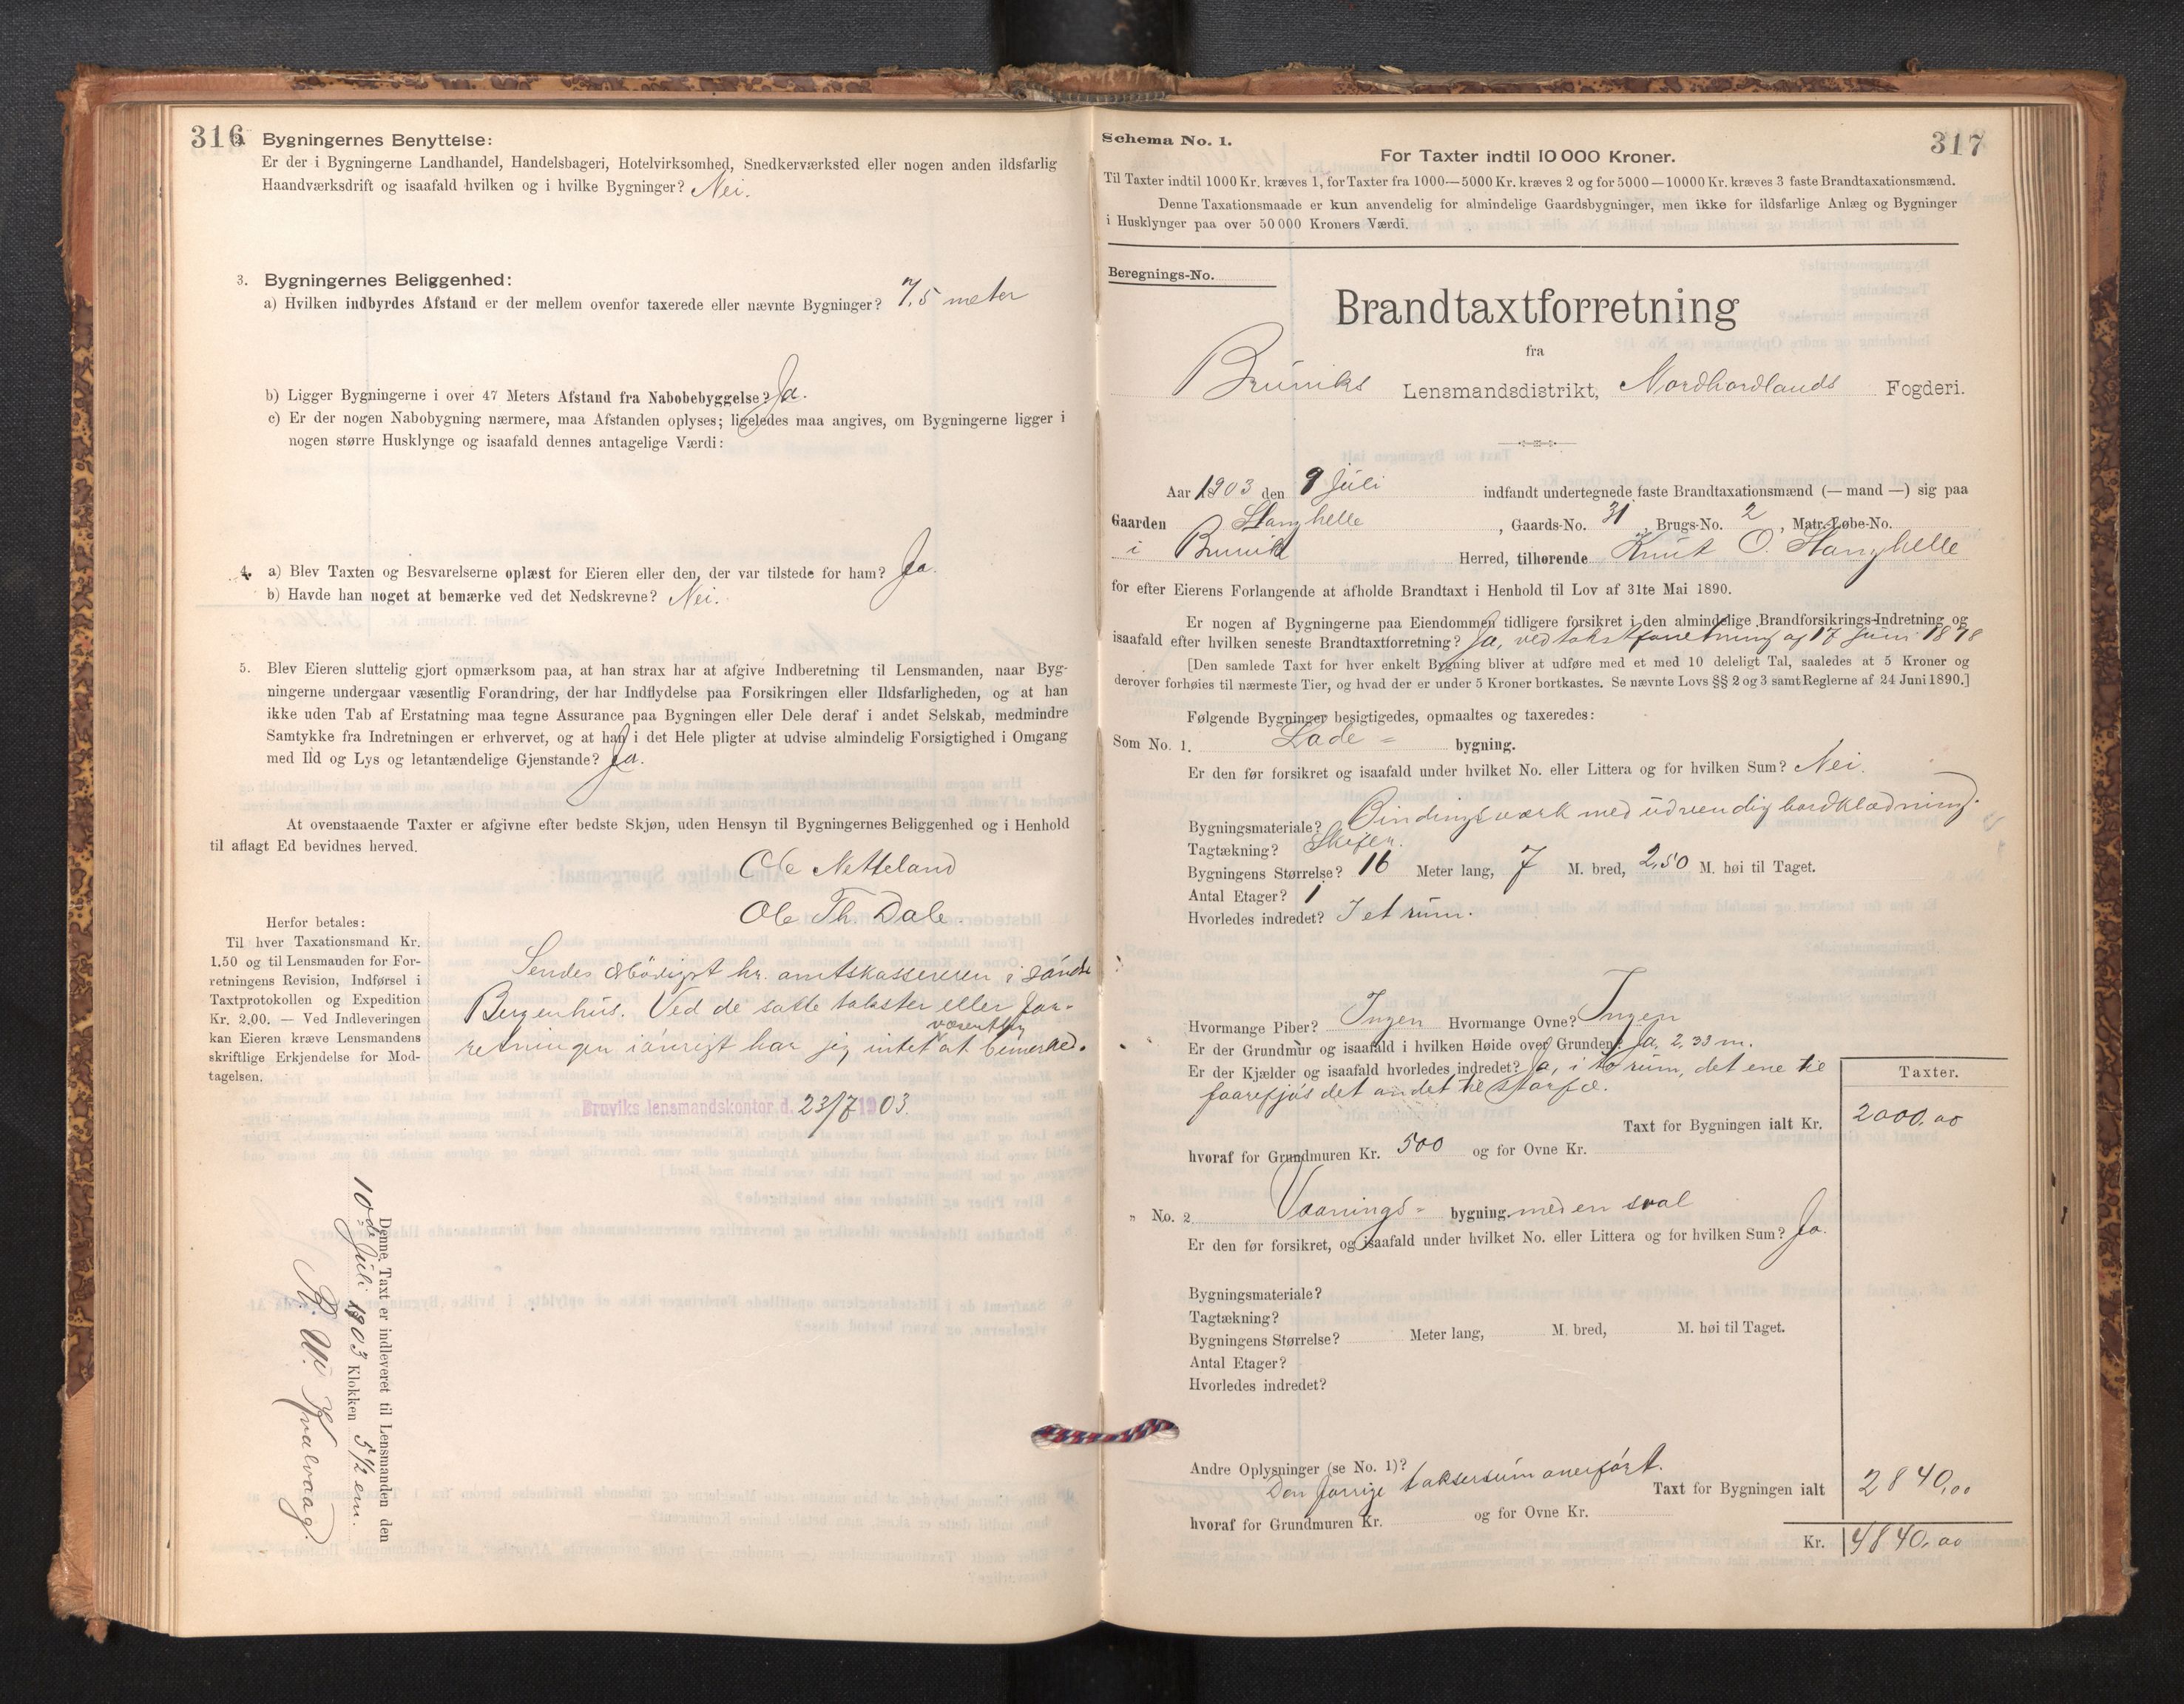 316
2. Bygningernes Benyttelse:
Er der i Bygningerne Landhandel, Handelsbageri, Hotelvirksomhed, Snedkerværksted eller nogen anden ildsfarlig
Haandværksdrift og isaafald hvilken og i hvilke Bygninger? Nei.
3. Bygningernes Beliggenhed:
a) Hvilken indbyrdes Afstand er der mellem ovenfor taxerede eller nævnte Bygninger? 7,5 meter
b) Ligger Bygningerne i over 47 Meters Afstand fra Nabobebyggelse? Ja.
c) Er der nogen Nabobygning nærmere, maa Afstanden oplyses; ligeledes maa angives, om Bygningerne ligger i
nogen større Husklynge og isaafald dennes antagelige Værdi:
4. a) Blev Taxten og Besvarelserne oplæst for Eieren eller den, der var tilstede for ham? Ja.
b) Havde han noget at bemærke ved det Nedskrevne? Nei.
5. Blev Eieren sluttelig gjort opmærksom paa, at han strax har at afgive Indberetning til Lensmanden, naar Byg-
ningerne undergaar væsentlig Forandring, der har Indflydelse paa Forsikringen eller Ildsfarligheden, og at han
ikke uden Tab af Erstatning maa tegne Assurance paa Bygningen eller Dele deraf i andet Selskab, medmindre
Samtykke fra Indretningen er erhvervet, og at han i det Hele pligter at udvise almindelig Forsigtighed i Omgang
med Ild og Lys og letantændelige Gjenstande? Ja.
At ovenstaaende Taxter er afgivne efter bedste Skjøn, uden Hensyn til Bygningernes Beliggenhed og i Henhold
til aflagt Ed bevidnes herved.
Ole Netteland
Ole Th. Dale.
Herfor betales:
Til hver Taxationsmand Kr.
1.50 og til Lensmanden for For-
retningens Revision, Indførsel i
Taxtprotokollen og Expedition
Kr. 2.00. — Ved Indleveringen
kan Eieren kræve Lensmandens
skriftlige Erkjendelse for Mod-
tagelsen.
Sendes ærbødigst hr. amtskassereren i søndre
Bergenhus. Ved de satte takster eller for-
retningen iøvrigt har jeg intet væsentlig at bemerke.
Bruviks lensmandskontor d. 23/7 1903.
Denne Taxt er indleveret til Lensmanden den
10de Juli 1903 Klokken 5 1/2 em.
Kvalvaag.
Schema No. 1.
317
For Taxter indtil 10 000 Kroner.
Til Taxter indtil 1000 Kr. kræves 1, for Taxter fra 1000—5000 Kr. kræves 2 og for 5000—10000 Kr. kræves 3 faste Brandtaxationsmænd.
Denne Taxationsmaade er kun anvendelig for almindelige Gaardsbygninger, men ikke for ildsfarlige Anlæg og Bygninger
i Husklynger paa over 50 000 Kroners Værdi.
Beregnings-No.
Brandtaxtforretning
fra
Bruviks Lensmandsdistrikt, Nordhordlands Fogderi.
Aar 1903 den 9 Juli indfandt undertegnede faste Brandtaxationsmænd (— mand —) sig paa
Gaarden Stanghelle, Gaards-No. 31, Brugs-No. 2, Matr.-Løbe-No.
i Bruvik Herred, tilhørende Knut O. Stanghelle
for efter Eierens Forlangende at afholde Brandtaxt i Henhold til Lov af 31te Mai 1890.
Er nogen af Bygningerne paa Eiendommen tidligere forsikret i den almindelige Brandforsikrings-Indretning og
isaafald efter hvilken seneste Brandtaxtforretning? Ja, ved takstforretning af 17 Juni 1878
[Den samlede Taxt for hver enkelt Bygning bliver at udføre med et med 10 deleligt Tal, saaledes at 5 Kroner og
derover forhøies til nærmeste Tier, og hvad der er under 5 Kroner bortkastes. Se nævnte Lovs §§ 2 og 3 samt Reglerne af 24 Juni 1890.]
Følgende Bygninger besigtigedes, opmaaltes og taxeredes:
Som No. 1. Lade- bygning.
Er den før forsikret og isaafald under hvilket No. eller Littera og for hvilken Sum? Nei.
Bygningsmateriale? Bindingsværk med udvendig bordklædning.
Tagtækning? Skifer.
Bygningens Størrelse? 16 Meter lang, 7 M. bred, 2,50 M. høi til Taget.
Antal Etager? 1
Hvorledes indredet? I et rum.
Hvormange Piber? Ingen Hvormange Ovne? Ingen
Er der Grundmur og isaafald i hvilken Høide over Grunden? Ja, 2,33 m.
Er der Kjælder og isaafald hvorledes indredet? Ja, i to rum, det ene til
faarefjøs det andet til storfæ.
Taxter.
Taxt for Bygningen ialt Kr. 2000,00
hvoraf for Grundmuren Kr. 500 og for Ovne Kr.
" No. 2. Vaanings- bygning. med en sval
Er den før forsikret, og isaafald under hvilket No. eller Littera og for hvilken Sum? Ja.
Bygningsmateriale?
Tagtækning?
Bygningens Størrelse? Meter lang, M. bred, M. høi til Taget.
Antal Etager?
Hvorledes indredet?
Andre Oplysninger (se No. 1)?
Den forrige taksersum anerført.
Taxt for Bygningen ialt 2840,00
hvoraf for Grundmuren Kr. og for Ovne Kr.
Kr. 4840,00